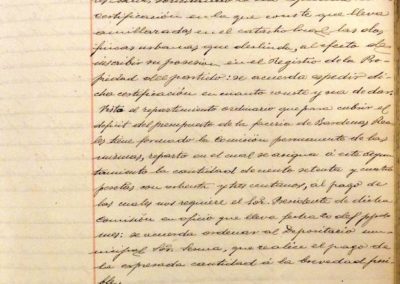 certificación en la que conste que lleva
amillaradas en el catastro local las dos
fincas urbanas que deslinda, al efecto de
inscribir su posesion en el Registro de la Pro
piedad del partido: se acuerda expedir di
cha certificación en cuanto conste y sea de dar.
Visto el repartimiento ordinario que para cubrir el
deficit del presupuesto de la facería de Bardenas Rea
les tiene formado la Comisión permanente de las
mismas, reparto en el cual se asigna á este Ayun
tamiento la cantidad de ciento setenta y cuatro
pesetas con ochenta y tres centimos, al pago de
las cuales nos requiere el Sr. Presidente de dicha
Comisión en oficio que lleva fecha
mes: se acuerda ordenar al Depositario mu
nicipal Sr. que realice el pago de
la expresada cantidad á la brevedad posi
ble.